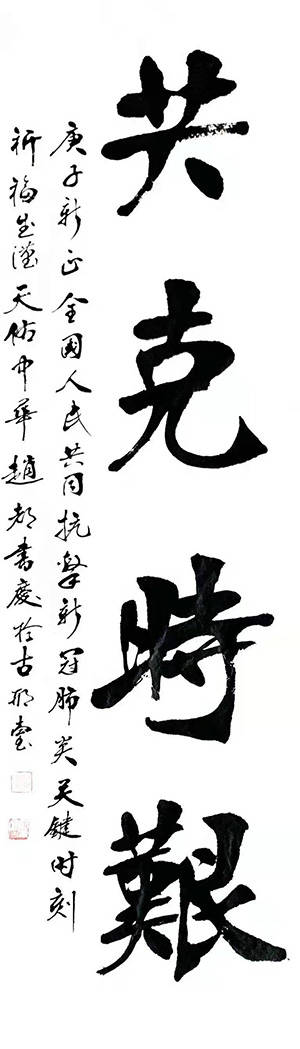 共克時艱
庚子新正全國人民共同抗擊新冠肺炎关鍵时刻
祈福武漢天佑中華趙都書慶於古邢臺